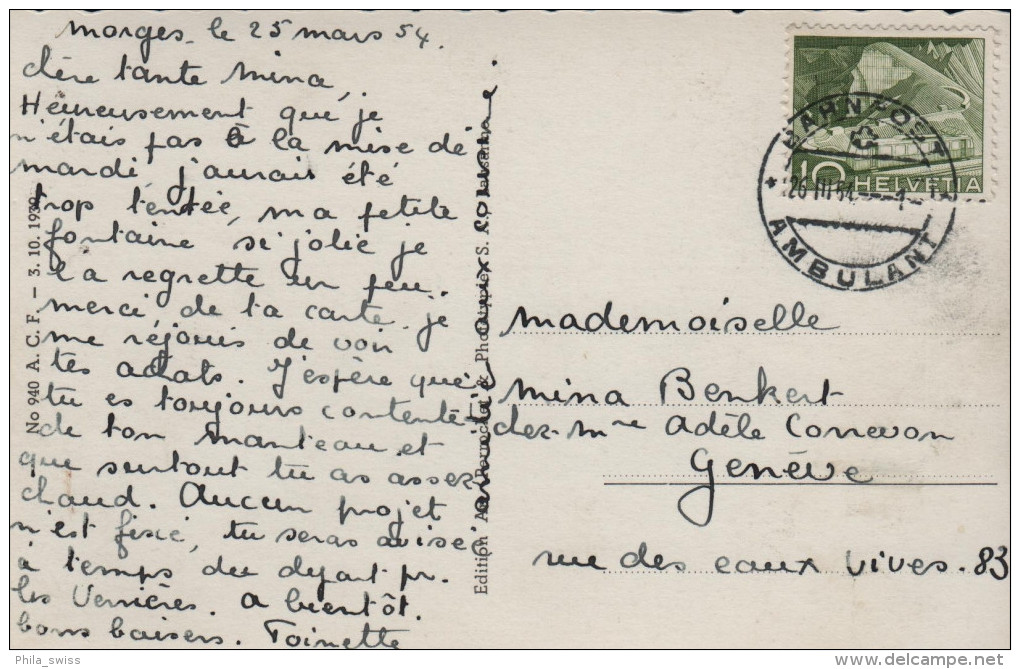 morges. le 25 mars 54.
chère tante mina,
Heureusement que je
n'étais pas à la mise de
mardi j'aurais été
trop tentée, ma petite
fontaine si jolie je
la regrette un peu.
merci de ta carte, je
me réjouis de voir
tes achats. J'espère que
tu es toujours contente
de ton manteau et
que surtout tu as assez
chaud. Aucun projet
n'est fixé, tu seras avisée
à temps du départ pr.
les Verrières. a bientôt.
bons baisers. Toinette
No 940 A. C. F. — 3. 10. 1939
Edition A. Perrochet & Phototypie S. A. Lausanne
BAHNPOST
* 26 III 54 — 1
AMBULANT
10 HELVETIA
mademoiselle
mina Benkert
chez. Mme adèle Connevon
Genève
rue des eaux vives. 83
Phila_swiss